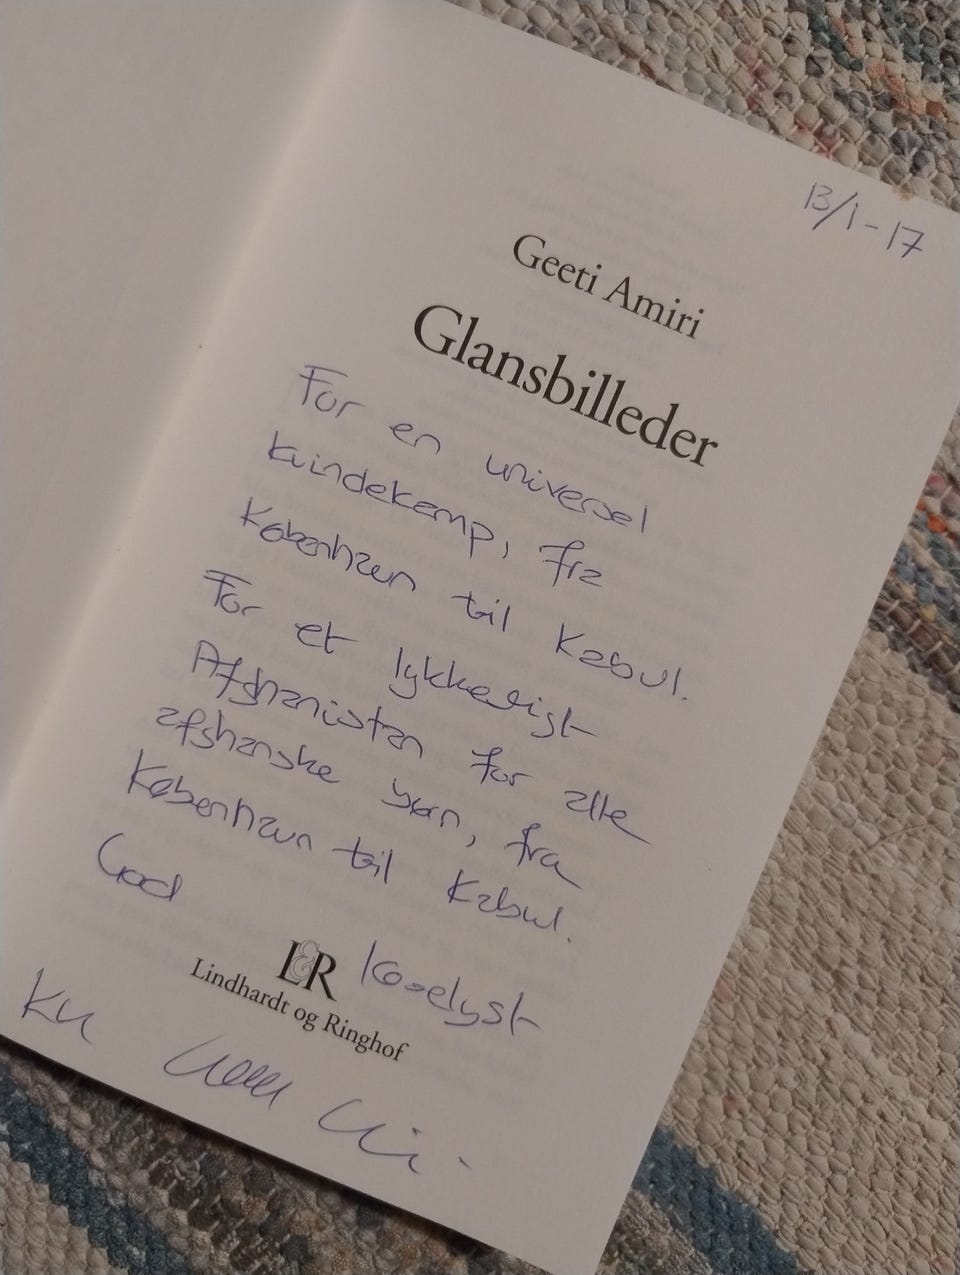 13/1-17
Geeti Amiri
Glansbilleder
For en universel
kvindekamp, fra
København til Kabul.
For et lykkeligt
Afghanistan for alle
afghanske børn, fra
København til Kabul.
God
L&R læselyst
Lindhardt og Ringhof
Kh